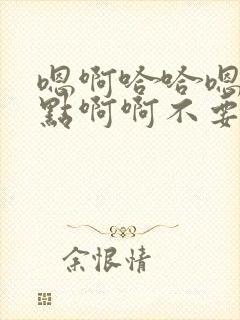 嗯啊哈哈嗯
點啊啊不要
余恨情